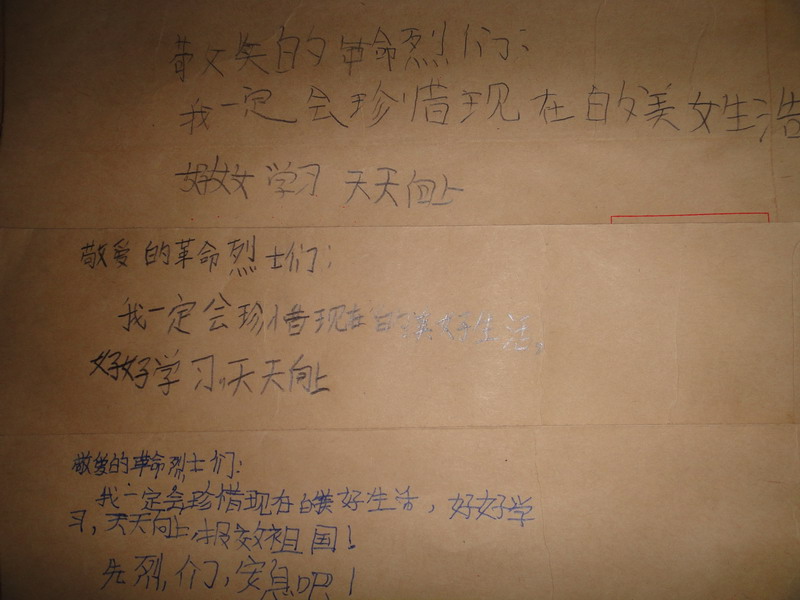 敬爱的革命烈士们：
我一定会珍惜现在的美好生活
好好学习 天天向上
敬爱的革命烈士们：
我一定会珍惜现在的美好生活。
好好学习，天天向上
敬爱的革命烈士们：
我一定会珍惜现在的美好生活，好好学
习，天天向上，报效祖国！
先烈，们，安息吧！